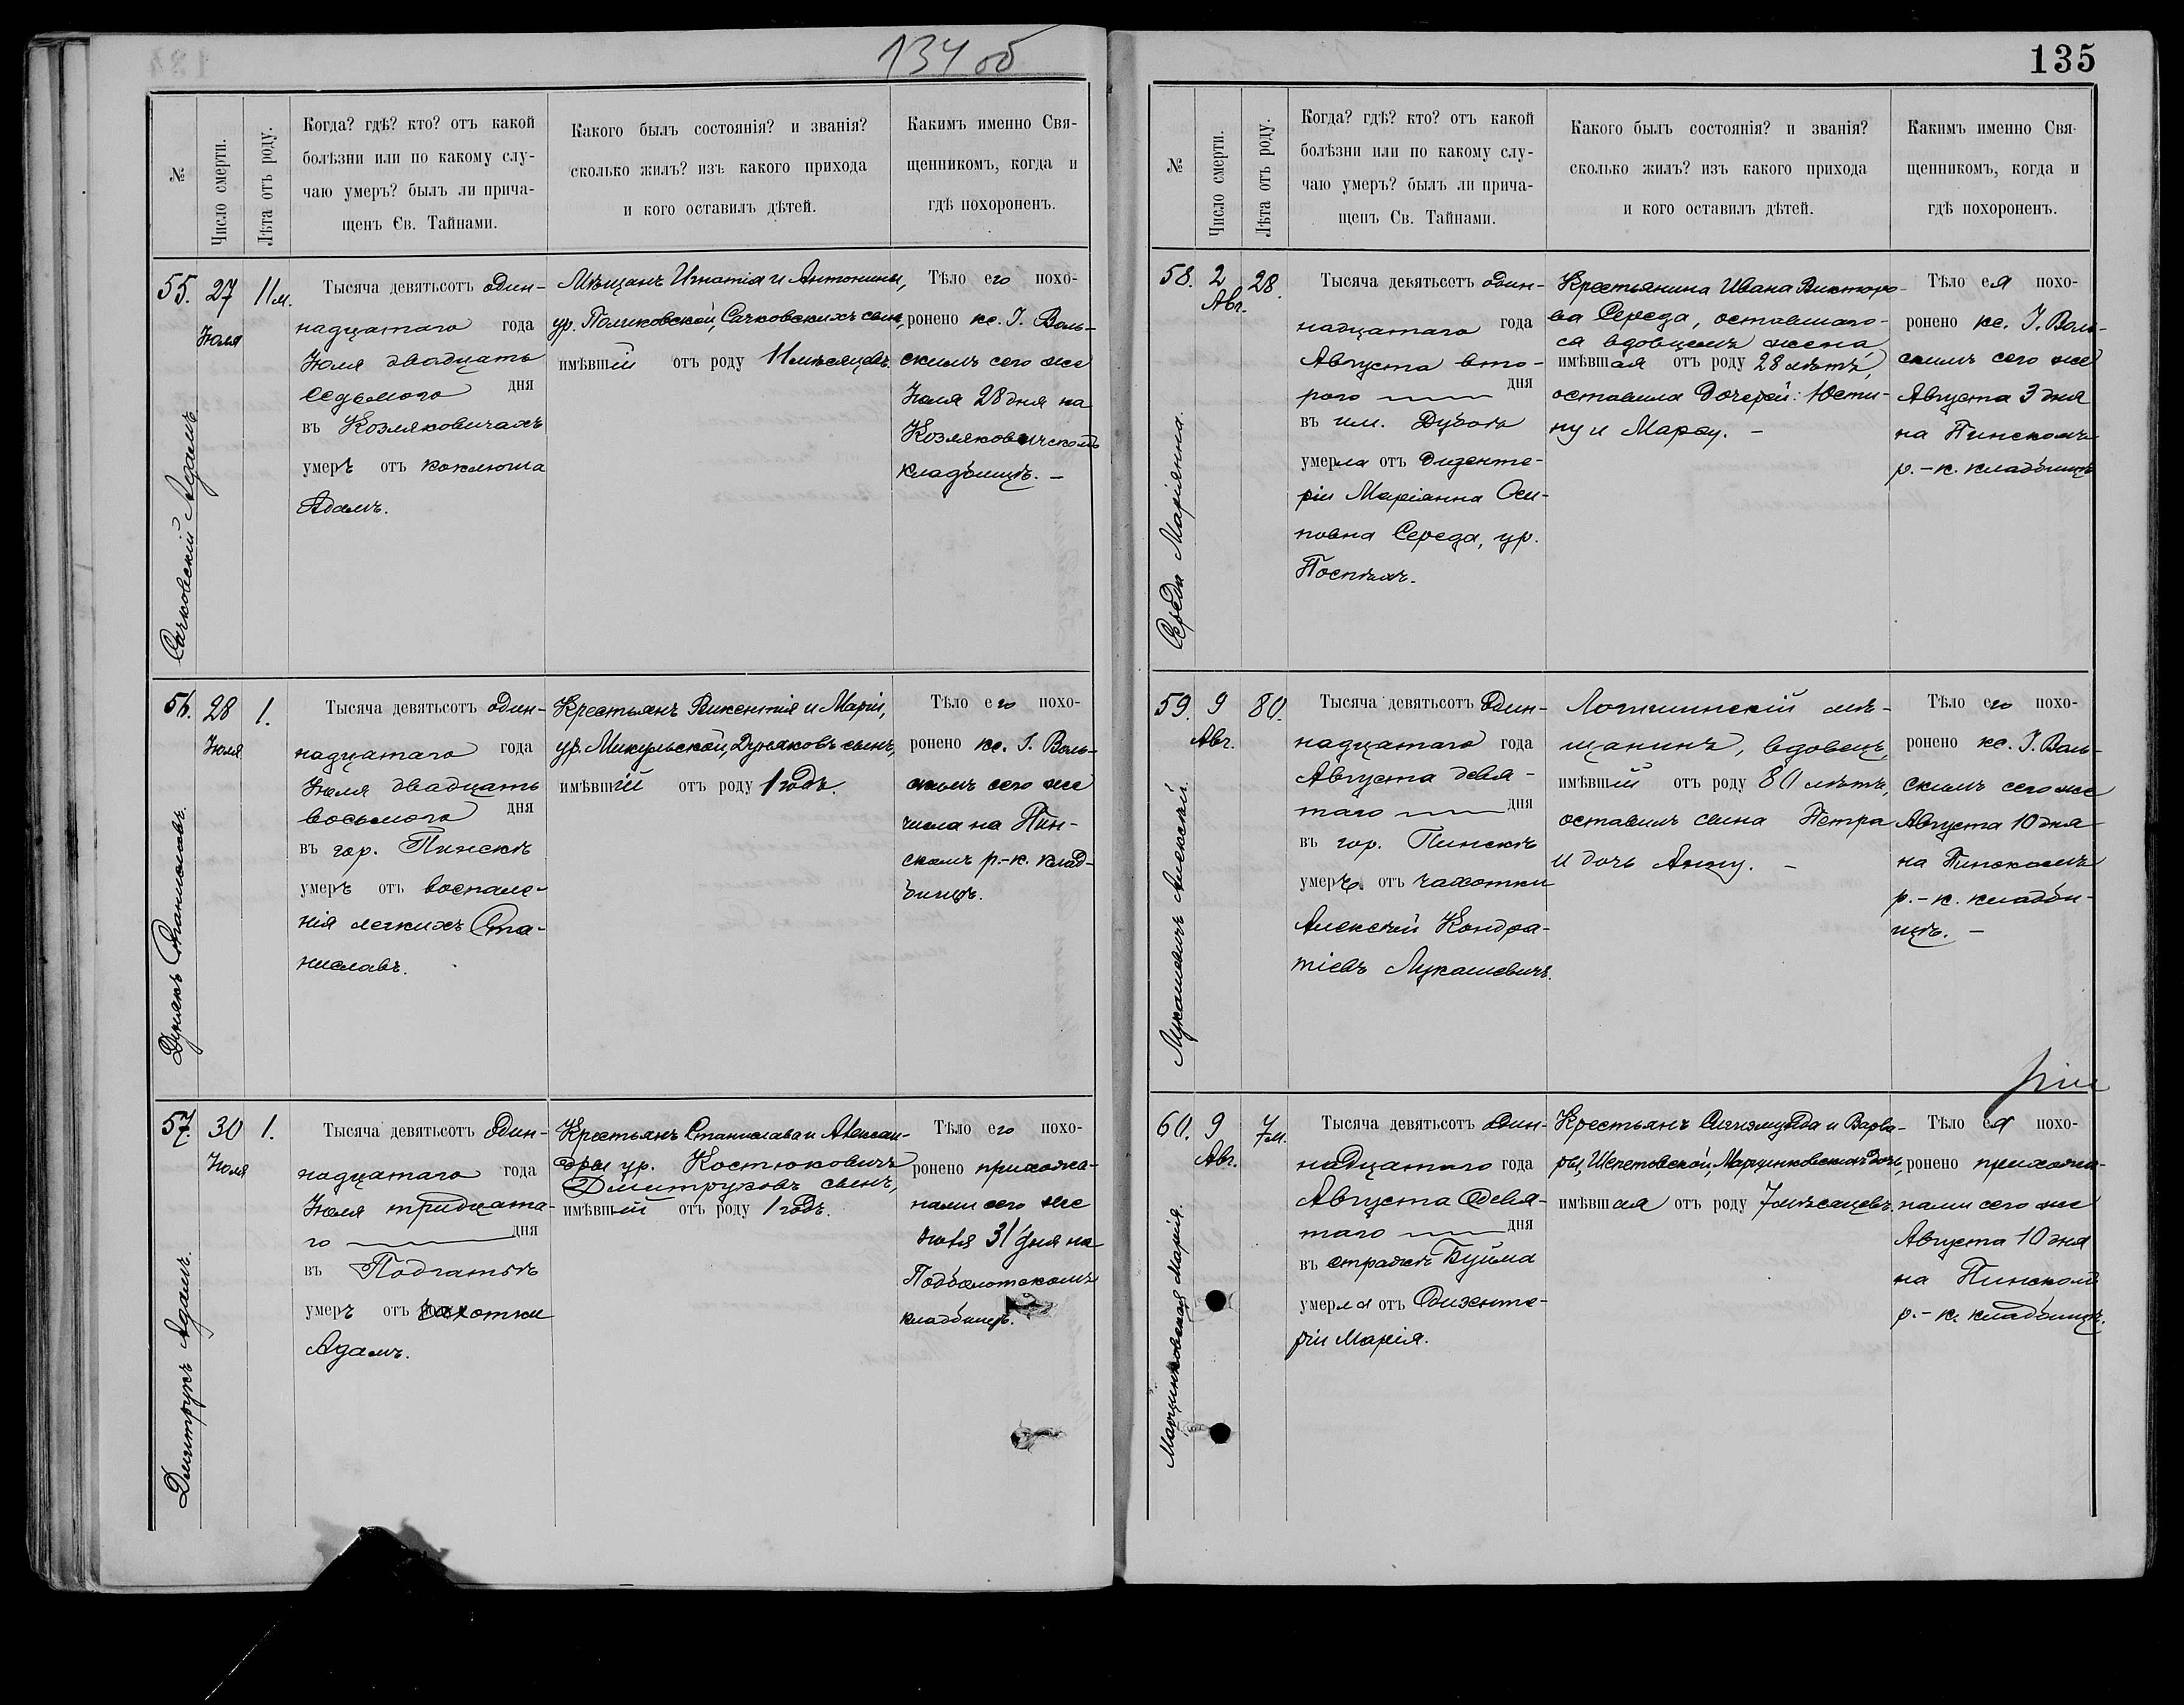 134 об
№
Число смерти.
Лѣта отъ роду.
Когда? гдѣ? кто? отъ какой
болѣзни или по какому слу-
чаю умеръ? былъ ли прича-
щенъ Св. Тайнами.
Какого былъ состоянія? и званія?
сколько жилъ? изъ какого прихода
и кого оставилъ дѣтей.
Какимъ именно Свя-
щенникомъ, когда и
гдѣ похороненъ.
55.
Сачковскій Адамъ
27
Іюля
11 м.
Тысяча девятьсотъ один-
надцатаго года
Іюля двадцать
седьмого дня
въ Козляковичахъ
умеръ отъ коклюша
Адамъ.
Мѣщанъ Игнатія и Антонины,
ур. Поликовской, Сачковскихъ сынъ,
имѣвшій отъ роду 11 мѣсяцевъ.
Тѣло его похо-
ронено кс. І. Воль-
скимъ сего же
Іюля 28 дня на
Козляковичскомъ
кладбищѣ. —
56.
Дунякъ Станиславъ.
28
Іюля
1.
Тысяча девятьсотъ один-
надцатаго года
Іюля двадцать
восьмого дня
въ гор. Пинскѣ
умеръ отъ воспале-
нія легкихъ Ста-
ниславъ.
Крестьянъ Викентія и Маріи,
ур. Микульской, Дуняковъ сынъ,
имѣвшій отъ роду 1 годъ.
Тѣло его похо-
ронено кс. І. Воль-
скимъ сего же
числа на Пин-
скомъ р.-к. клад-
бищѣ.
57.
Дмитрукъ Адамъ.
30
Іюля
1.
Тысяча девятьсотъ один-
надцатаго года
Іюля тридцата-
го дня
въ Подгатьѣ
умеръ отъ чахотки
Адамъ.
Крестьянъ Станислава и Алексан-
дры ур. Костюковичъ
Дмитруковъ сынъ,
имѣвшій отъ роду 1 годъ.
Тѣло его похо-
ронено прихожа-
нами сего же
Іюля 31 дня на
Подболотскомъ
кладбищѣ.
135
№
Число смерти.
Лѣта отъ роду.
Когда? гдѣ? кто? отъ какой
болѣзни или по какому слу-
чаю умеръ? былъ ли прича-
щенъ Св. Тайнами.
Какого былъ состоянія? и званія?
сколько жилъ? изъ какого прихода
и кого оставилъ дѣтей.
Какимъ именно Свя-
щенникомъ, когда и
гдѣ похороненъ.
58.
Середа Маріянна.
2
Авг.
28.
Тысяча девятьсотъ один-
надцатаго года
Августа вто-
рого дня
въ им. Дубой
умерла отъ дизенте-
ріи Маріанна Оси-
повна Середа, ур.
Поспѣхъ.
Крестьянина Ивана Викторо-
ва Середа, оставшаго-
ся вдовцемъ жена
имѣвшая отъ роду 28 лѣтъ,
оставила дочерей: Юсти-
ну и Марѳу. —
Тѣло ея похо-
ронено кс. І. Воль-
скимъ сего же
Августа 3 дня
на Пинскомъ
р.-к. кладбищѣ
59.
Лукашевичъ Алексѣй.
9
Авг.
80.
Тысяча девятьсотъ один-
надцатаго года
Августа девя-
таго дня
въ гор. Пинскѣ
умеръ отъ чахотки
Алексѣй Кондра-
тіевъ Лукашевичъ.
Логишинскій мѣ-
щанинъ, вдовецъ,
имѣвшій отъ роду 80 лѣтъ,
оставилъ сына Петра
и дочь Анну. —
Тѣло его похо-
ронено кс. І. Воль-
скимъ сего же
Августа 10 дня
на Пинскомъ
р.-к. кладби-
щѣ. —
60.
Марцинковская Марія.
9
Авг.
7 м.
Тысяча девятьсотъ один-
надцатаго года
Августа девя-
таго дня
въ стражѣ Буйма
умерла отъ дизенте-
ріи Марія.
Крестьянъ Сигизмунда и Варва-
ры, Шепетовской, Марцинковскихъ дочь,
имѣвшая отъ роду 7 мѣсяцевъ.
Тѣло ея похо-
ронено прихожа-
нами сего же
Августа 10 дня
на Пинскомъ
р.-к. кладбищѣ.